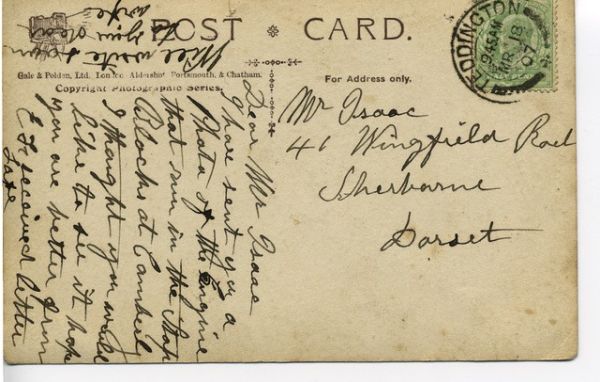 POST CARD.
Gale & Polden, Ltd. London Aldershot Portsmouth, & Chatham.
Copyright Photographic Series.
For Address only.
TEDDINGTON
945AM
MR 18
07
Mr Isaac
41 Wingfield Road
Sherborne
Dorset
Dear Mr Isaac
I have sent you a
Photo of the Engine
that run in the Stop
Blocks at Camberl
I thought you would
Like to see it hope
you are better from
E I received letter
Safe
Will write soon
to you dear
wife